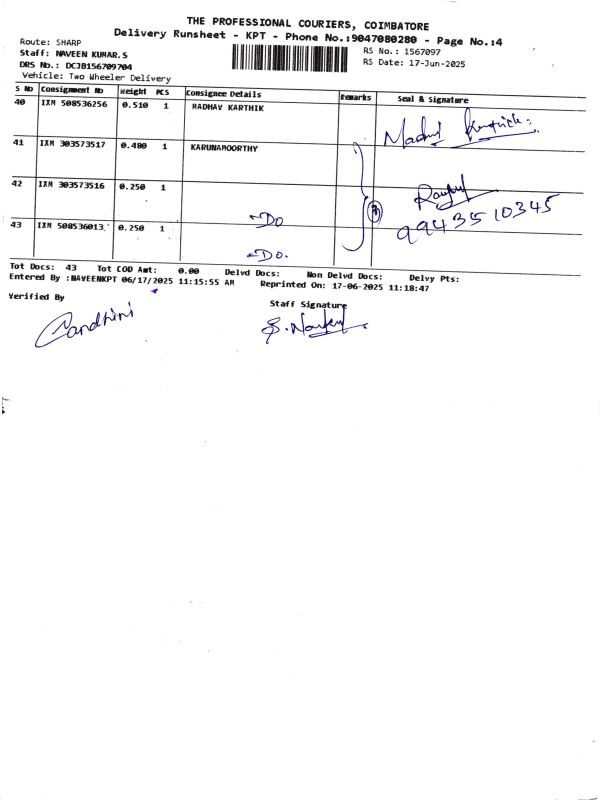 THE PROFESSIONAL COURIERS, COIMBATORE
Delivery Runsheet - KPT - Phone No.:9047080280 - Page No.:4
Route: SHARP
Staff: NAVEEN KUMAR.S
DRS No.: DCJB156709704
Vehicle: Two Wheeler Delivery
RS No.: 1567097
RS Date: 17-Jun-2025
S No Consignment No Weight PCS Consignee Details Remarks Seal & Signature
40 IXM 508536256 0.510 1 MADHAV KARTHIK
Madhav Karthick
41 IXM 303573517 0.480 1 KARUNAMOORTHY
42 IXM 303573516 0.250 1
-Do
3
9943510345
43 IXM 508536013 0.250 1
-Do.
Tot Docs: 43 Tot COD Amt: 0.00 Delvd Docs: Non Delvd Docs: Delvy Pts:
Entered By :NAVEENKPT 06/17/2025 11:15:55 AM Reprinted On: 17-06-2025 11:18:47
Verified By
Staff Signature
Gandhini